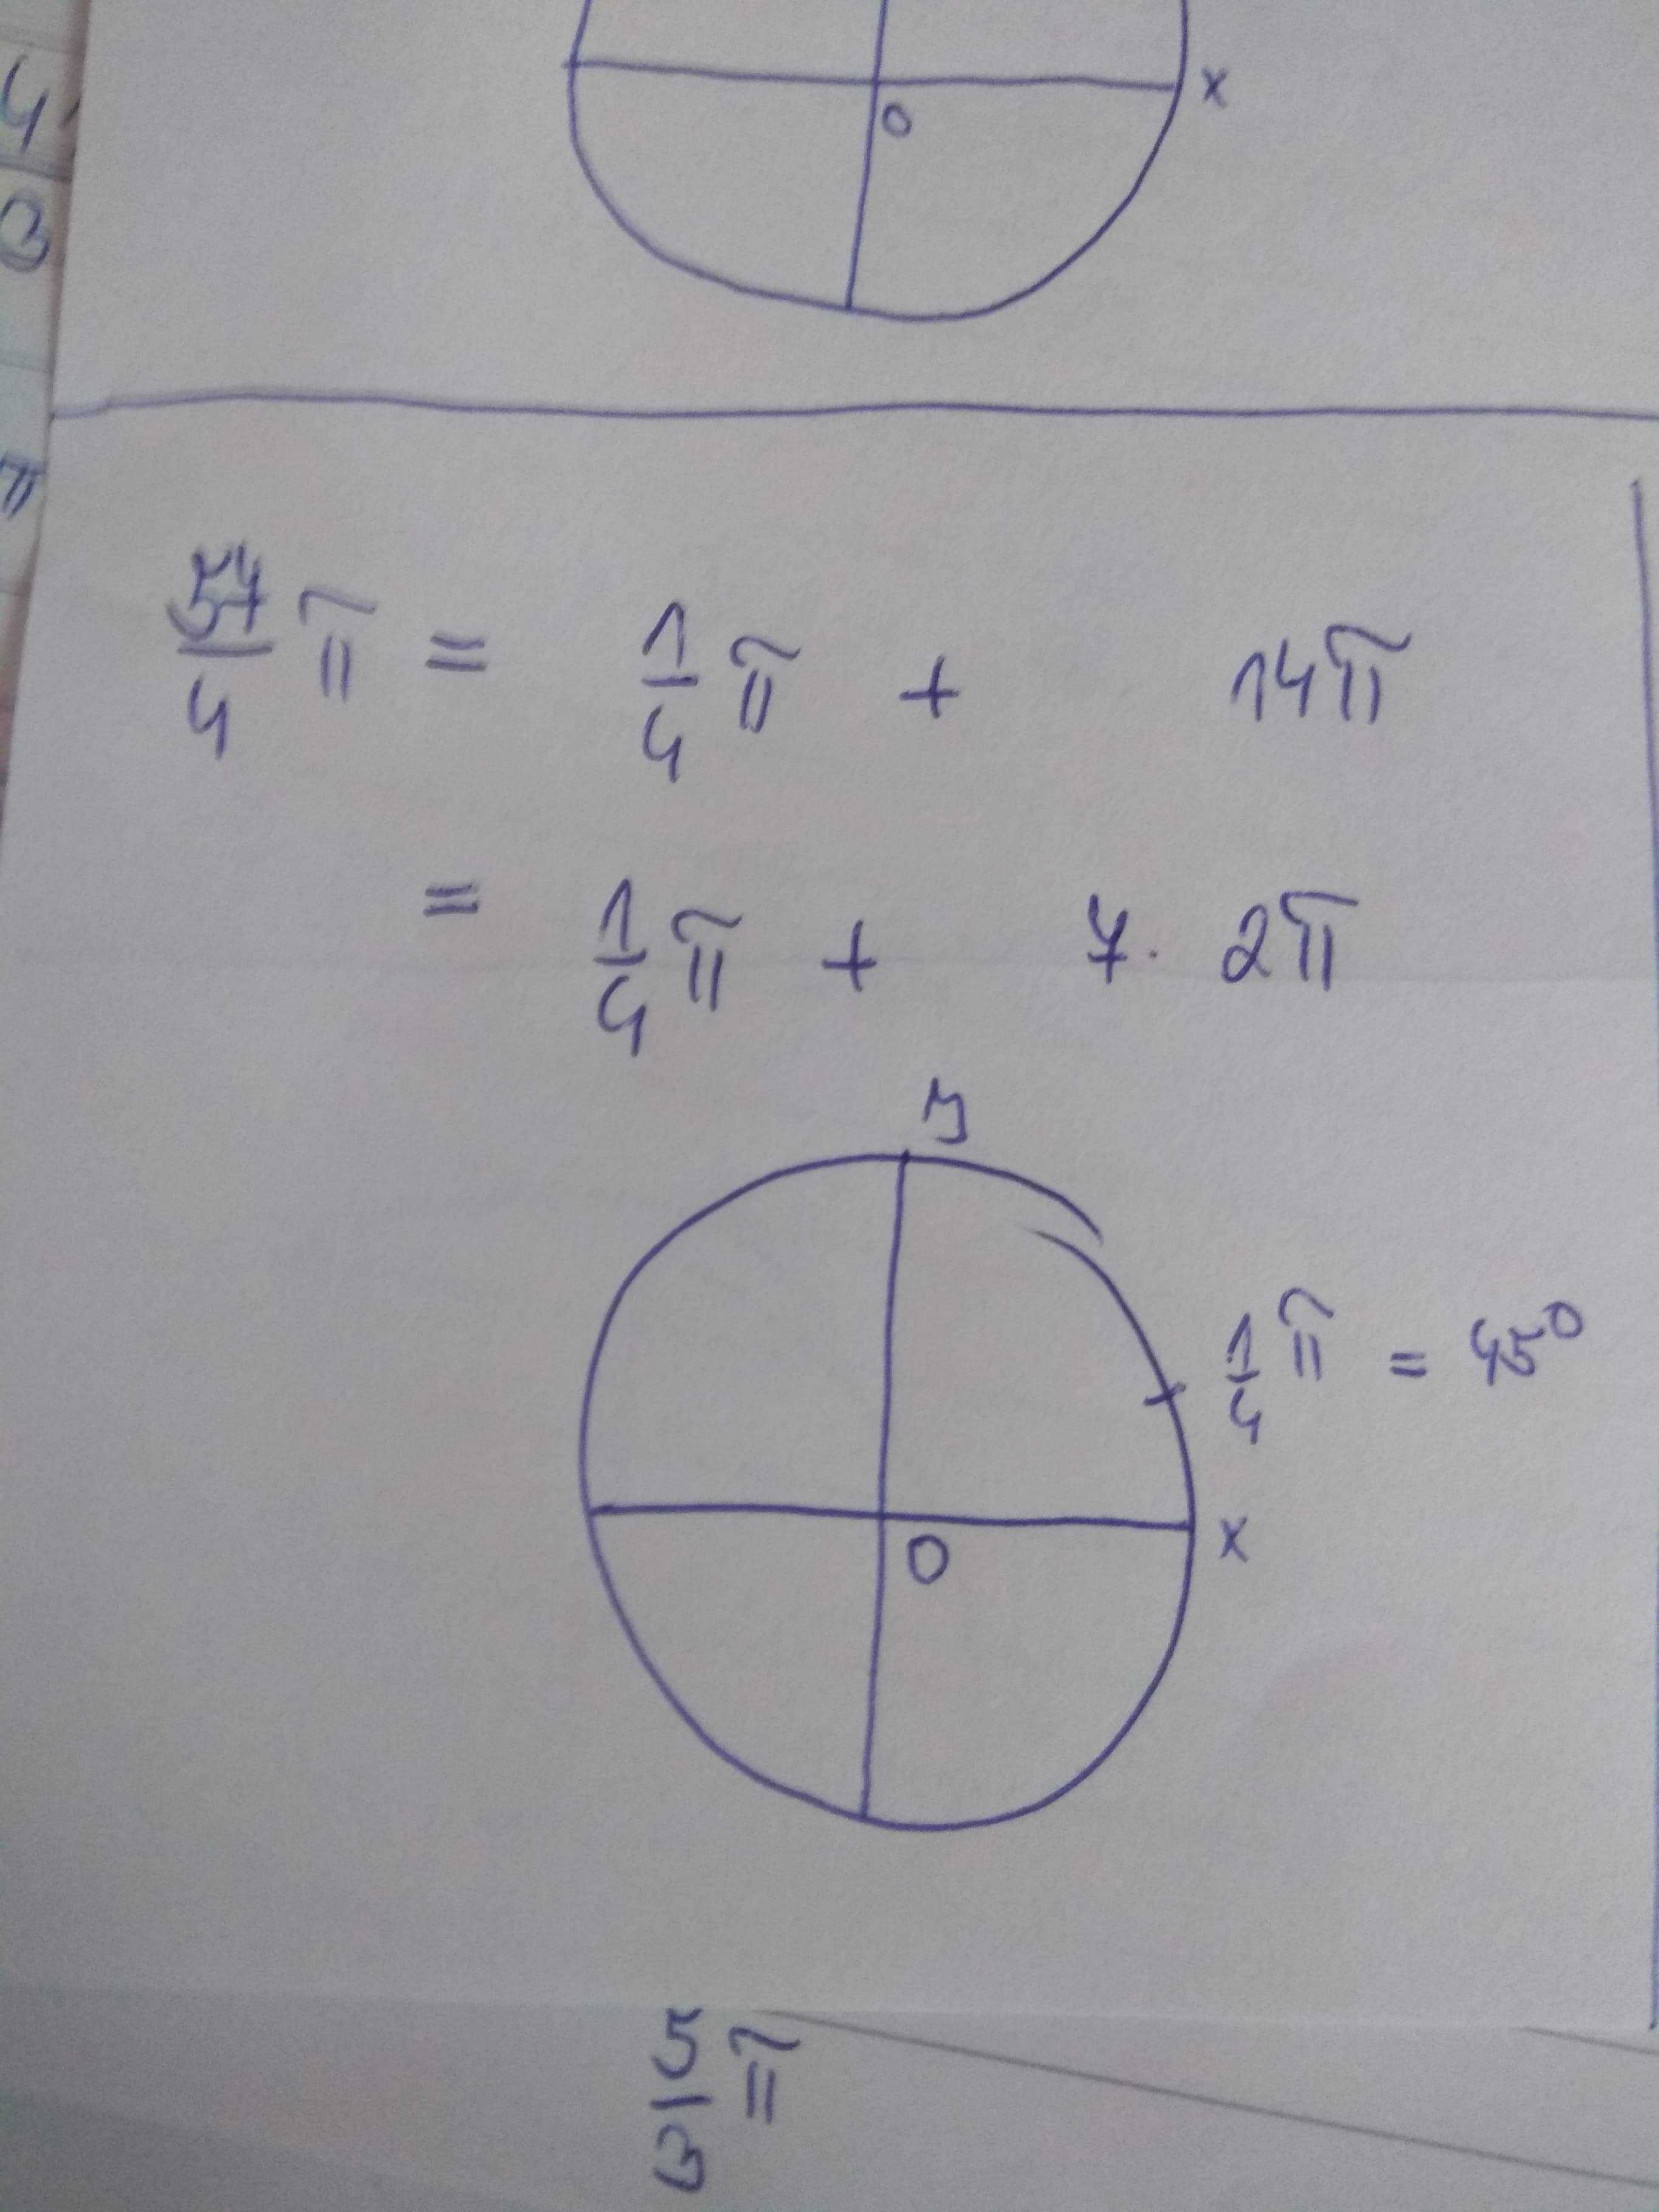 4
3
π
x
0
57/4 π = 1/4 π + 14π
= 1/4 π + 7 · 2π
y
1/4 π = 45°
x
0
5/3 π